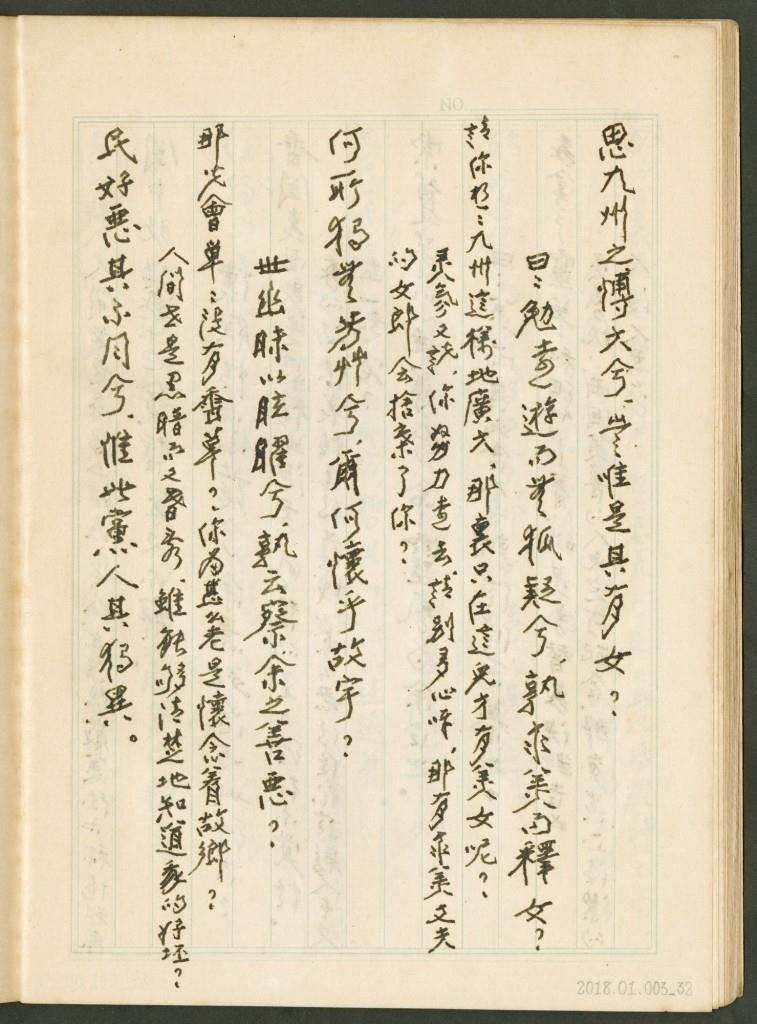 思九州之博大兮、豈惟是其有女？
曰：勉遠遊而無狐疑兮、孰求美而釋女？
請你想：九州這樣地廣大、那裏只在這兒才有美女呢？
靈氛又説、你努力遠去、請別多心吧、那有求美丈夫
的女郎會捨棄了你？
何所獨無芳艸兮、爾何懷乎故宇？
世幽昧以眩曜兮、孰云察余之善惡？
那兒會單：沒有香草？你為甚么老是懷念着故鄉？
人間老是黑暗而又昏亂、誰能够清楚地知道我的好坯？
民好惡其不同兮、惟此黨人其獨異。
NO
2018.01.003_32